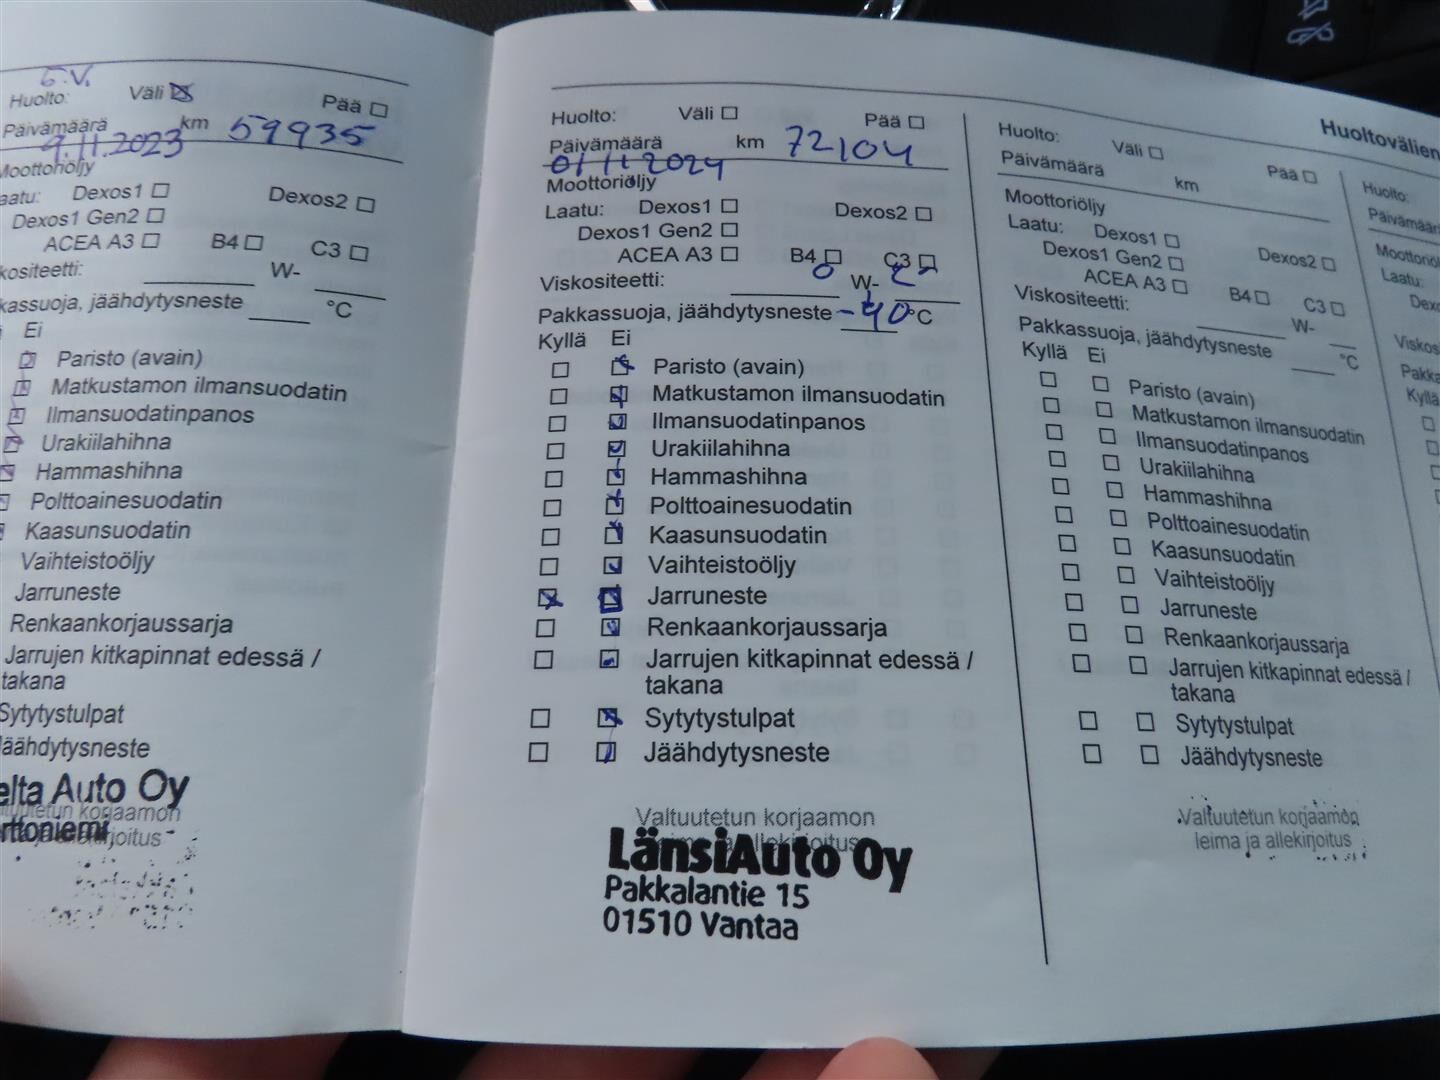 5.V.
Huolto: Väli Pää
Päivämäärä km 59935
9.11.2023
Moottoriöljy
aatu: Dexos1 Dexos2
Dexos1 Gen2
ACEA A3 B4 C3
kositeetti: W-
kassuoja, jäähdytysneste °C
Ei
Paristo (avain)
Matkustamon ilmansuodatin
Ilmansuodatinpanos
Urakiilahihna
Hammashihna
Polttoainesuodatin
Kaasunsuodatin
Vaihteistoöljy
Jarruneste
Renkaankorjaussarja
Jarrujen kitkapinnat edessä /
takana
Sytytystulpat
Jäähdytysneste
elta Auto Oy
Valtuutetun korjaamon
rttoniemi
ja allekirjoitus
Huolto: Väli Pää
Päivämäärä km 72104
01 11 2024
Moottoriöljy
Laatu: Dexos1 Dexos2
Dexos1 Gen2
ACEA A3 B4 C3
Viskositeetti: 0 W-
Pakkassuoja, jäähdytysneste -40 °C
Kyllä Ei
Paristo (avain)
Matkustamon ilmansuodatin
Ilmansuodatinpanos
Urakiilahihna
Hammashihna
Polttoainesuodatin
Kaasunsuodatin
Vaihteistoöljy
Jarruneste
Renkaankorjaussarja
Jarrujen kitkapinnat edessä /
takana
Sytytystulpat
Jäähdytysneste
Valtuutetun korjaamon
leima ja allekirjoitus
LänsiAuto Oy
Pakkalantie 15
01510 Vantaa
Huoltovälien
Huolto: Väli Pää
Päivämäärä km
Moottoriöljy
Laatu: Dexos1 Dexos2
Dexos1 Gen2
ACEA A3 B4 C3
Viskositeetti: W-
Pakkassuoja, jäähdytysneste °C
Kyllä Ei
Paristo (avain)
Matkustamon ilmansuodatin
Ilmansuodatinpanos
Urakiilahihna
Hammashihna
Polttoainesuodatin
Kaasunsuodatin
Vaihteistoöljy
Jarruneste
Renkaankorjaussarja
Jarrujen kitkapinnat edessä /
takana
Sytytystulpat
Jäähdytysneste
Valtuutetun korjaamon
leima ja allekirjoitus
Huolto:
Päivämäärä
Moottoriöl
Laatu:
Dexo
Viskos
Pakka
Kyllä